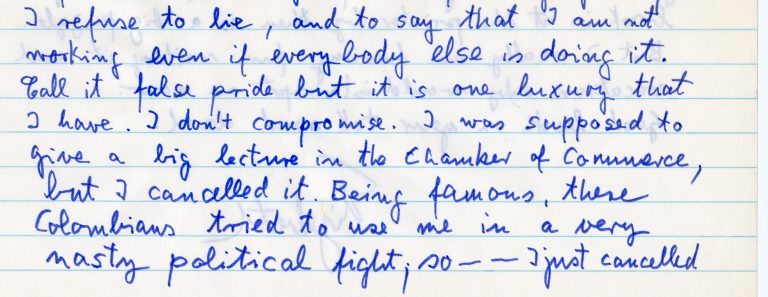 I refuse to lie, and to say that I am not
working even if everybody else is doing it.
Call it false pride but it is one luxury that
I have. I don't compromise. I was supposed to
give a big lecture in the Chamber of Commerce,
but I cancelled it. Being famous, these
Colombians tried to use me in a very
nasty political fight; so — — I just cancelled